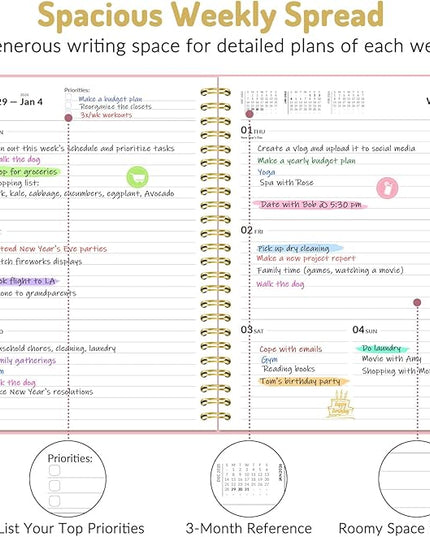 Spacious Weekly Spread
enerous writing space for detailed plans of each we
29 — Jan 4
Priorities:
Make a budget plan
Reorganize the closets
3x/wk workouts
an out this week's schedule and prioritize tasks
lk the dog
op for groceries
opping list:
k, kale, cabbage, cucumbers, eggplant, Avocado
tend New Year's Eve parties
tch fireworks displays
ok flight to LA
one to grandparents
usehold chores, cleaning, laundry
mily gatherings
m
lk the dog
ke New Year's resolutions
01 THU
Create a vlog and upload it to social media
Make a yearly budget plan
Yoga
Spa with Rose
Date with Bob @ 5:30 pm
02 FRI
Pick up dry cleaning
Make a new project report
Family time (games, watching a movie)
Walk the dog
03 SAT
Cope with emails
Gym
Reading books
Tom's birthday party
happy birthday
04 SUN
Do laundry
Movie with Amy
Shopping with Mo
Priorities:
DEC 2025
List Your Top Priorities
3-Month Reference
Roomy Space